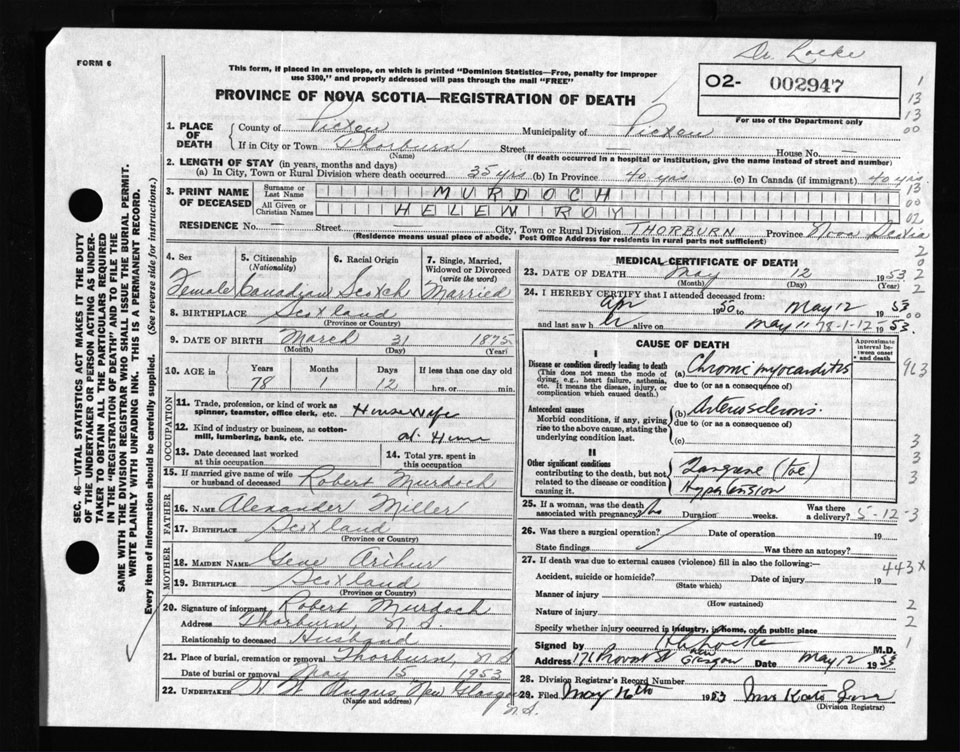 FORM 6
Dr Locke
This form, if placed in an envelope, on which is printed "Dominion Statistics—Free, penalty for improper
use $300," and properly addressed will pass through the mail "FREE"
O2- 002947
For use of the Department only
PROVINCE OF NOVA SCOTIA—REGISTRATION OF DEATH
1. PLACE OF DEATH { County of Pictou Municipality of Pictou
If in City or Town Thorburn Street — House No. —
(Name) (If death occurred in a hospital or institution, give the name instead of street and number)
2. LENGTH OF STAY (in years, months and days)
(a) In City, Town or Rural Division where death occurred 35 yrs (b) In Province 40 yrs (c) In Canada (if immigrant) 40 yrs.
3. PRINT NAME OF DECEASED { Surname or Last Name MURDOCH
All Given or Christian Names HELEN ROY
RESIDENCE No. — Street — City, Town or Rural Division THORBURN Province Nova Scotia
(Residence means usual place of abode. Post Office Address for residents in rural parts not sufficient)
4. Sex Female
5. Citizenship (Nationality) Canadian
6. Racial Origin Scotch
7. Single, Married, Widowed or Divorced (write the word) Married
8. BIRTHPLACE Scotland
(Province or Country)
9. DATE OF BIRTH March 31 1875
(Month) (Day) (Year)
10. AGE in Years 78 Months 1 Days 12 If less than one day
hrs. or min.
OCCUPATION
11. Trade, profession, or kind of work as spinner, teamster, office clerk, etc. Housewife
12. Kind of industry or business, as cotton-mill, lumbering, bank, etc. at Home
13. Date deceased last worked at this occupation
14. Total yrs. spent in this occupation
15. If married give name of wife or husband of deceased Robert Murdoch
FATHER
16. NAME Alexander Miller
17. BIRTHPLACE Scotland
(Province or Country)
MOTHER
18. MAIDEN NAME Gene Arthur
19. BIRTHPLACE Scotland
(Province or Country)
20. Signature of informant Robert Murdoch
Address Thorburn, N.S.
Relationship to deceased Husband
21. Place of burial, cremation or removal Thorburn, N.S.
Date of burial or removal May 15 1953
22. UNDERTAKER Angus, New Glasgow
N.S.
(Name and address)
MEDICAL CERTIFICATE OF DEATH
23. DATE OF DEATH May 12 1953
(Month) (Day)
24. I HEREBY CERTIFY that I attended deceased from:
Apr 1950 to May 12 1953
and last saw h er alive on May 11 78-1-12 1953.
CAUSE OF DEATH
Approximate interval between onset & death
I
Disease or condition directly leading to death
(This does not mean the mode of dying, e.g., heart failure, asthenia, etc. It means the disease, injury, or complication which caused death.)
(a) Chronic myocarditis
due to (or as a consequence of)
Antecedent causes
Morbid conditions, if any, giving rise to the above cause, stating the underlying condition last.
(b) Arteriosclerosis.
due to (or as a consequence of)
(c)
II
Other significant conditions
contributing to the death, but not related to the disease or condition causing it.
Gangrene (toe)
Hypertension
25. If a woman, was the death associated with pregnancy? No Duration weeks. Was there a delivery?
5-12-3
26. Was there a surgical operation? Date of operation 19
State findings Was there an autopsy?
27. If death was due to external causes (violence) fill in also the following:—
443X
Accident, suicide or homicide? Date of injury 19
(State which)
Manner of injury
(How sustained)
Nature of injury
Specify whether injury occurred in industry, in home, or in public place
Signed by Locke M.D.
Address 171 Provost St New Glasgow Date May 12 1953
28. Division Registrar's Record Number
29. Filed May 16th 1953 Mrs
(Division Registrar)
SEC. 46—VITAL STATISTICS ACT MAKES IT THE DUTY
OF THE UNDERTAKER OR PERSON ACTING AS UNDER-
TAKER TO OBTAIN ALL THE PARTICULARS REQUIRED
IN THE "REGISTRATION OF DEATH" AND TO FILE THE
SAME WITH THE DIVISION REGISTRAR WHO SHALL ISSUE THE BURIAL PERMIT.
WRITE PLAINLY WITH UNFADING INK. THIS IS A PERMANENT RECORD.
Every item of information should be carefully supplied. (See reverse side for instructions.)
1
13
13
00
13
00
02
2
0
2
00
3
3
3
2
2
1